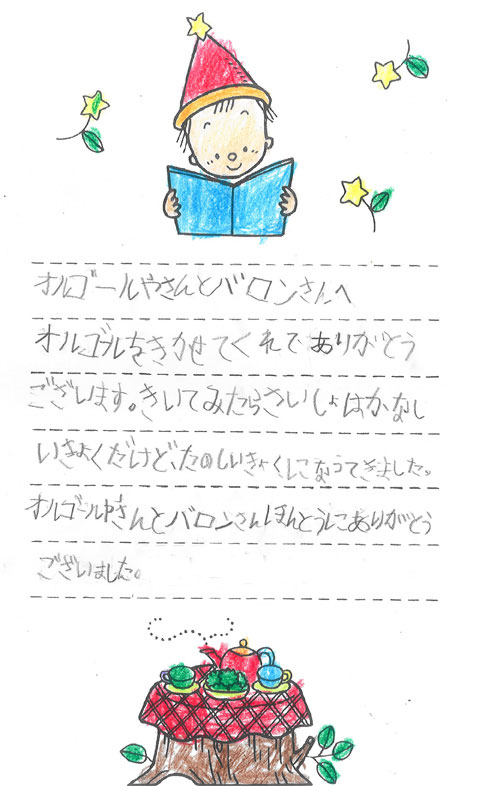 オルゴールやさんとバロンさんへ
オルゴルをきかせてくれてありがとう
ございます。きいてみたらさいしょはかなし
いきょくだけど、たのしいきょくになってきました。
オルゴールやさんとバロンさんほんとうにありがとう
ございました。